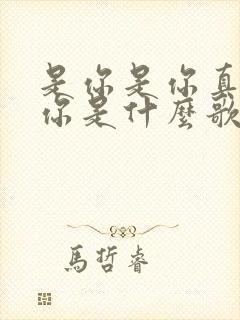 是你是你真
你是什麼歌
馬哲睿